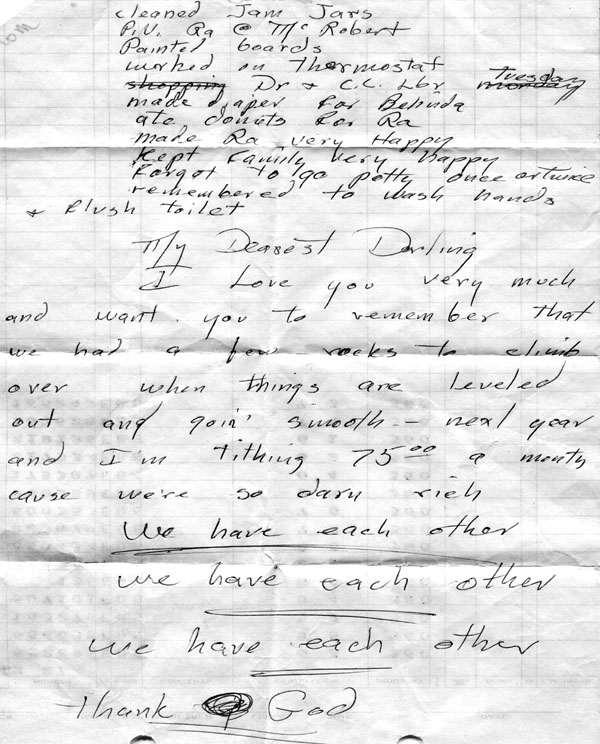 cleaned Jam Jars
P.U. Ra @ McRobert
Painted boards
worked on thermostat
shopping Dr & C.C. Lbr. monday Tuesday
made diaper for Belinda
ate donuts for Ra
made Ra very Happy
Kept Family very happy
Forgot to go potty once or twice
remembered to wash hands
& flush toilet
My Dearest Darling
I Love you very much
and want you to remember that
we had a few rocks to climb
over when things are leveled
out and goin' smooth - next year
and I'm tithing 75.00 a month
cause we're so darn rich
We have each other
we have each other
we have each other
Thank God